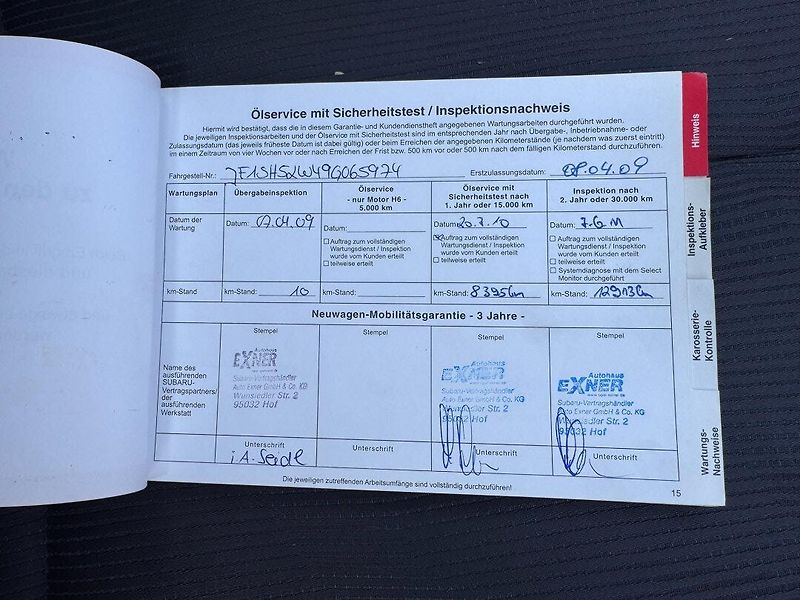 Ölservice mit Sicherheitstest / Inspektionsnachweis
Hiermit wird bestätigt, dass die in diesem Garantie- und Kundendienstheft angegebenen Wartungsarbeiten durchgeführt wurden.
Die jeweiligen Inspektionsarbeiten und der Ölservice mit Sicherheitstest sind im entsprechenden Jahr nach Übergabe-, Inbetriebnahme- oder
Zulassungsdatum (das jeweils früheste Datum ist dabei gültig) oder beim Erreichen der angegebenen Kilometerstände (je nachdem was zuerst eintritt)
im einem Zeitraum von vier Wochen vor oder nach Erreichen der Frist bzw. 500 km vor oder 500 km nach dem fälligen Kilometerstand durchzuführen.
Fahrgestell-Nr.: JF1SH52W49G065974 Erstzulassungsdatum: 08.04.09
Wartungsplan Übergabeinspektion Ölservice - nur Motor H6 - 5.000 km Ölservice mit Sicherheitstest nach 1. Jahr oder 15.000 km Inspektion nach 2. Jahr oder 30.000 km
Datum der Wartung
Datum: 07.04.09
Datum:
Auftrag zum vollständigen
Wartungsdienst / Inspektion
wurde vom Kunden erteilt
teilweise erteilt
Datum: 20.7.10
Auftrag zum vollständigen
Wartungsdienst / Inspektion
wurde vom Kunden erteilt
teilweise erteilt
Datum: 7.6.11
Auftrag zum vollständigen
Wartungsdienst / Inspektion
wurde vom Kunden erteilt
teilweise erteilt
Systemdiagnose mit dem Select
Monitor durchgeführt
km-Stand km-Stand: 10 km-Stand: km-Stand: 8395km km-Stand: 12913km
Neuwagen-Mobilitätsgarantie - 3 Jahre -
Name des
ausführenden
SUBARU-
Vertragspartners/
der
ausführenden
Werkstatt
Stempel
Autohaus
EXNER
Subaru-Vertragshändler
Auto Exner GmbH & Co. KG
Wunsiedler Str. 2
95032 Hof
Unterschrift
i.A. Seidl
Stempel
Unterschrift
Stempel
Autohaus
EXNER
Subaru-Vertragshändler
Auto Exner GmbH & Co. KG
Wunsiedler Str. 2
95032 Hof
Unterschrift
Stempel
Autohaus
EXNER
Subaru-Vertragshändler
Auto Exner GmbH & Co. KG
Wunsiedler Str. 2
95032 Hof
Unterschrift
Die jeweiligen zutreffenden Arbeitsumfänge sind vollständig durchzuführen!
15
Hinweis
Inspektions-
Aufkleber
Karosserie-
Kontrolle
Wartungs-
Nachweise